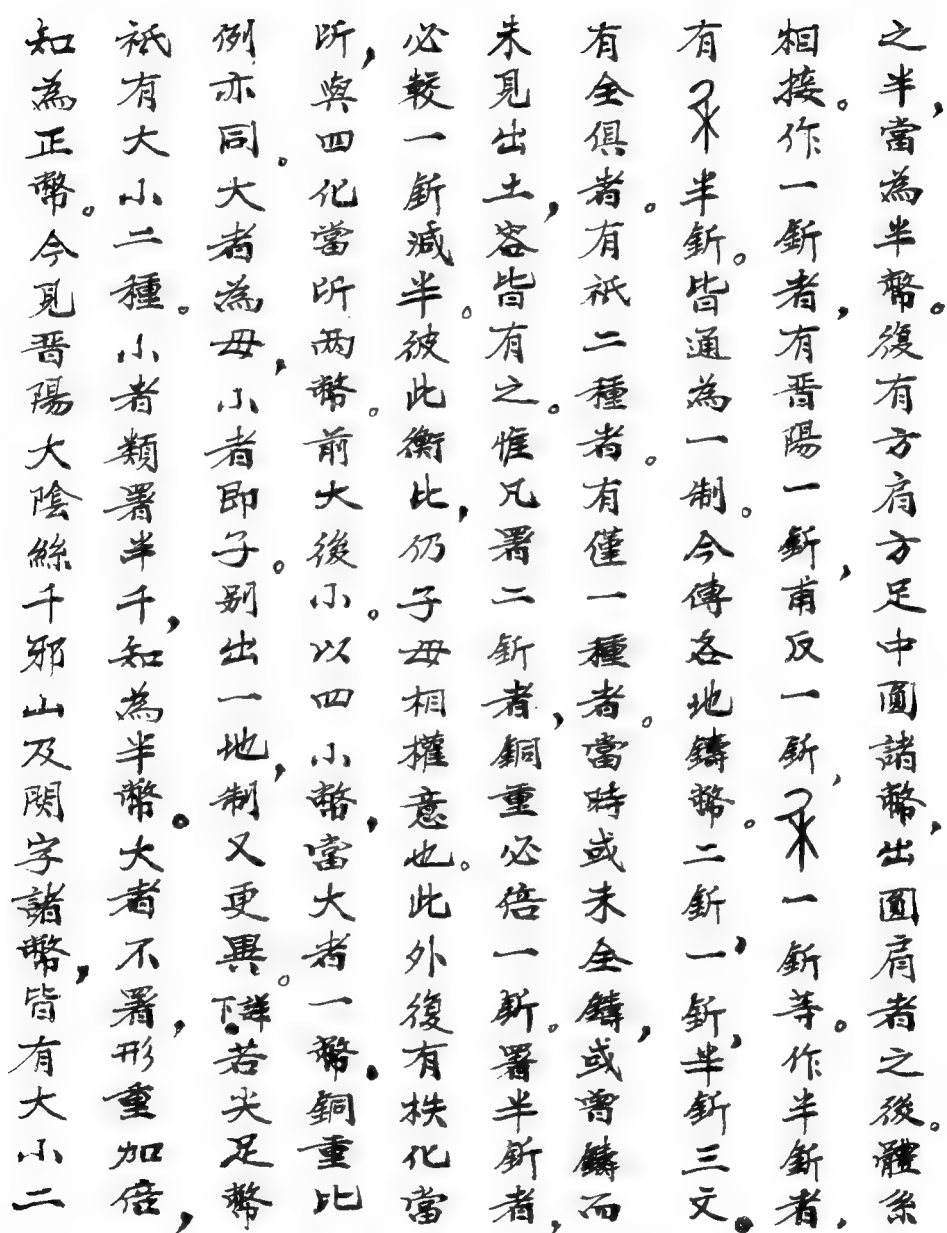 之半，當為半幣。復有方肩方足中圓諸幣，出圓肩者之後。體系
相接。作一釿者，有晋陽一釿，甫反一釿，一釿等。作半釿者，
有半釿。皆通為一制。今傳各地鑄幣。二釿一釿，半釿三文。
有全俱者。有祇二種者。有僅一種者。當時或未全鑄，或曾鑄而
未見出土，容皆有之。惟凡署二釿者，銅重必倍一釿。署半釿者，
必較一釿減半。彼此衡比，仍子母相權意也。此外復有栨化當
所，與四化當所两幣。前大後小。以四小幣，當大者一幣。銅重比
例亦同。大者為母，小者即子。别出一地，制又更異。下詳。若尖足幣
祇有大小二種。小者類署半千，知為半幣。大者不署，形重加倍，
知為正幣。今見晋陽大陰絲千邪山及閔字諸幣，皆有大小二